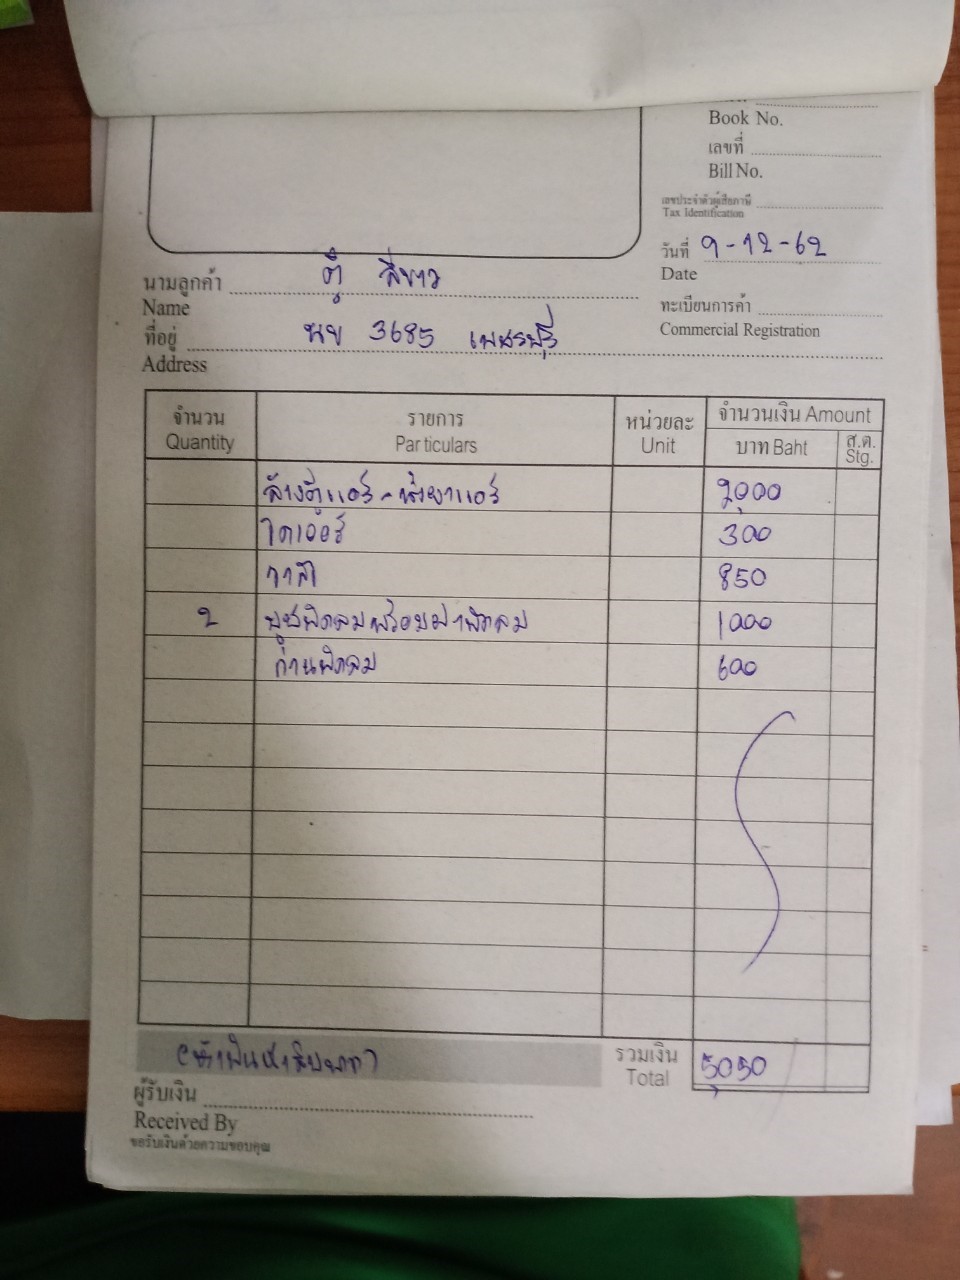 Book No.
เลขที่
Bill No.
เลขประจำตัวผู้เสียภาษี
Tax Identification
วันที่ 9-12-62
Date
นามลูกค้า ตู่ สีขาว
Name
ทะเบียนการค้า
Commercial Registration
ที่อยู่ นข 3685 เพชรบุรี
Address
จำนวน รายการ หน่วยละ จำนวนเงิน Amount
Quantity Particulars Unit บาท Baht ส.ต. Stg.
ล้างตู้แอร์ - น้ำยาแอร์ 2,000
ไดเออร์ 300
วาล์ว 850
2 พัดลมพร้อมฝาพัดลม 1000
ก้านพัดลม 600
(ห้าพันห้าสิบบาท) รวมเงิน 5,050
Total
ผู้รับเงิน
Received By
ขอรับเงินด้วยความขอบคุณ